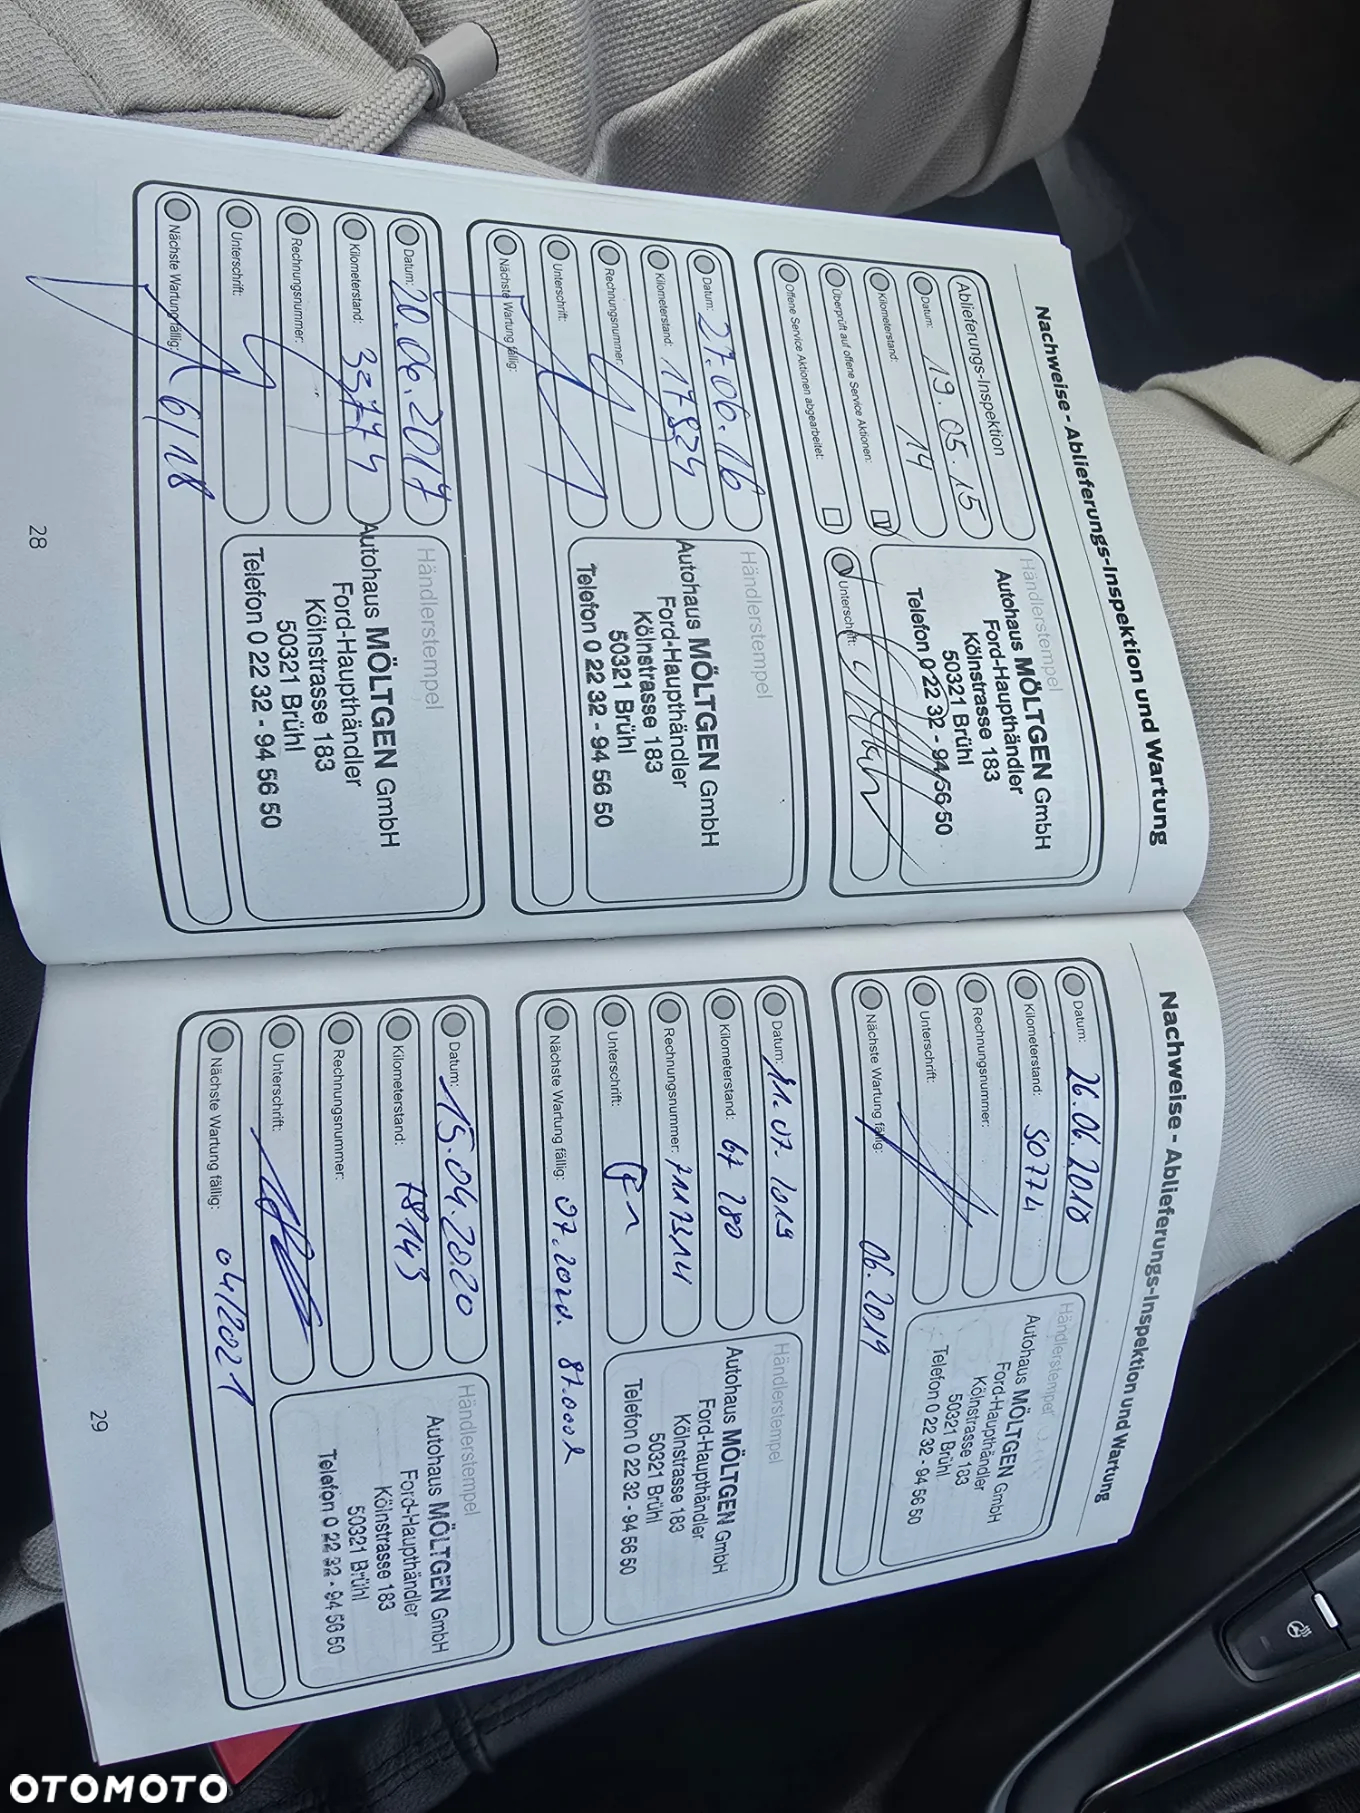 Nachweise - Ablieferungs-Inspektion und Wartung
Ablieferungs-Inspektion
Datum: 19.05.15
Kilometerstand: 14
Überprüft auf offene Service Aktionen:
Offene Service Aktionen abgearbeitet:
Händlerstempel
Autohaus MÖLTGEN GmbH
Ford-Haupthändler
Kölnstrasse 183
50321 Brühl
Telefon 0 22 32 - 94 56 50
Unterschrift:
Datum: 27.06.16
Kilometerstand: 17824
Rechnungsnummer:
Unterschrift:
Nächste Wartung fällig:
Händlerstempel
Autohaus MÖLTGEN GmbH
Ford-Haupthändler
Kölnstrasse 183
50321 Brühl
Telefon 0 22 32 - 94 56 50
Datum: 20.06.2017
Kilometerstand: 33774
Rechnungsnummer:
Unterschrift:
Nächste Wartung fällig: 6/18
Händlerstempel
Autohaus MÖLTGEN GmbH
Ford-Haupthändler
Kölnstrasse 183
50321 Brühl
Telefon 0 22 32 - 94 56 50
28
Nachweise - Ablieferungs-Inspektion und Wartung
Datum: 26.06.2018
Kilometerstand: 50774
Rechnungsnummer:
Unterschrift:
Nächste Wartung fällig: 06.2019
Händlerstempel
Autohaus MÖLTGEN GmbH
Ford-Haupthändler
Kölnstrasse 183
50321 Brühl
Telefon 0 22 32 - 94 56 50
Datum: 11.07.2019
Kilometerstand: 67280
Rechnungsnummer: 7117314
Unterschrift:
Nächste Wartung fällig: 07.2020. 87.000
Händlerstempel
Autohaus MÖLTGEN GmbH
Ford-Haupthändler
Kölnstrasse 183
50321 Brühl
Telefon 0 22 32 - 94 56 50
Datum: 15.04.2020
Kilometerstand: 78143
Rechnungsnummer:
Unterschrift:
Nächste Wartung fällig: 04/2021
Händlerstempel
Autohaus MÖLTGEN GmbH
Ford-Haupthändler
Kölnstrasse 183
50321 Brühl
Telefon 0 22 32 - 94 56 50
29
OTOMOTO